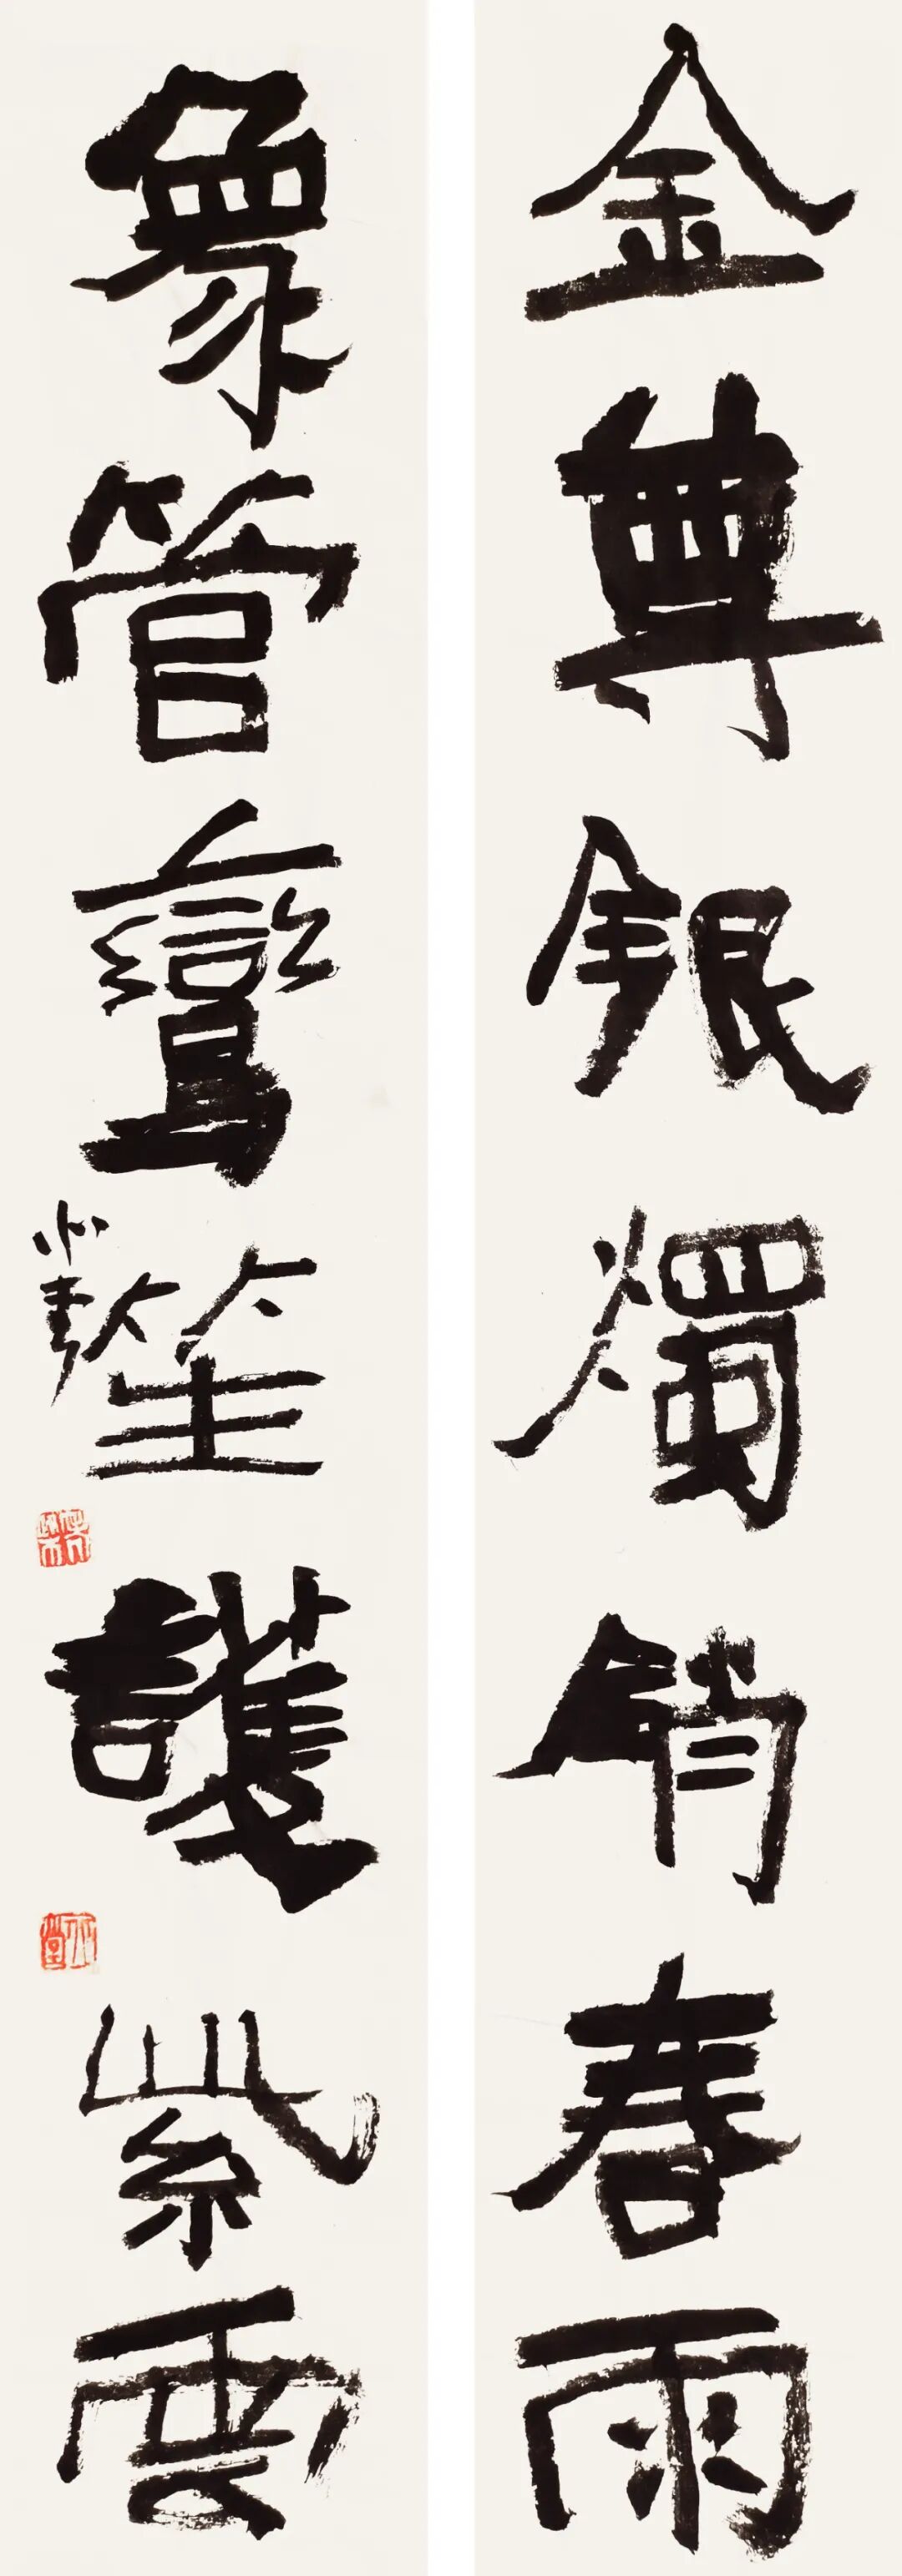 金尊銀燭銷春雨
象管鸞笙護紫雲